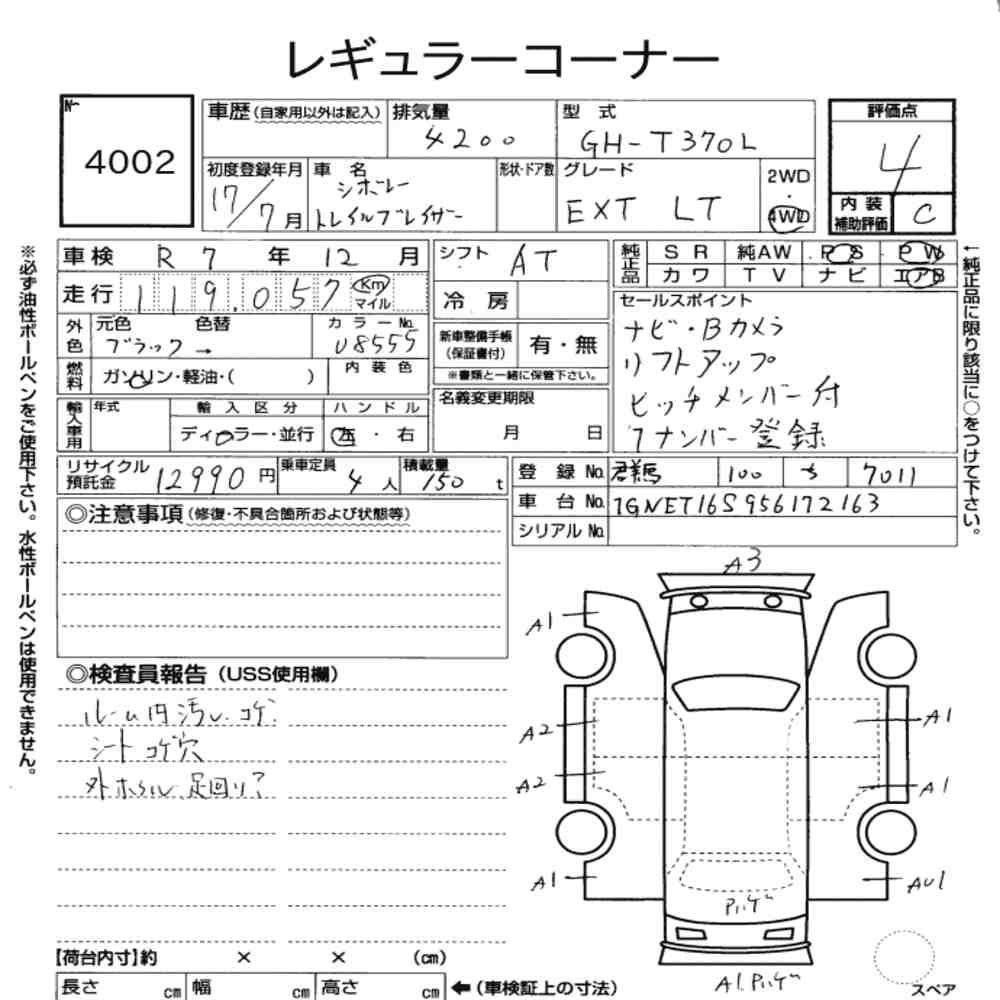 レギュラーコーナー
№ 4002
車歴(自家用以外は記入) 排気量 4200 型式 GH-T370L 評価点 4
初度登録年月 17/7月 車名 シボレー トレイルブレイザー 形状・ドア数 グレード EXT LT 2WD・4WD
内装補助評価 C
車検 R 7年 12月 シフト AT 純正品 SR 純AW PS PW
カワ TV ナビ エアB
走行 119,057 Km マイル 冷房
セールスポイント
ナビ・Bカメラ
リフトアップ
ヒッチメンバー付
1ナンバー登録
外色 元色 ブラック→ 色替 カラーNo. U8555
新車整備手帳(保証書付) 有・無
※書類と一緒に保管下さい。
燃料 ガソリン・軽油・( ) 内装色
名義変更期限 月 日
輸入車用 年式 輸入区分 ディーラー・並行 ハンドル 左・右
リサイクル預託金 12990円 乗車定員 4人 積載量 150 t
登録No. 群馬 100 ち 7011
車台No. 1GNET16S956172163
シリアルNo.
◎注意事項(修復・不具合箇所および状態等)
◎検査員報告(USS使用欄)
ルーム内汚レ.コゲ
シートコゲ穴
外ホイル.足回り?
A3
A1
A2 A1
A2 A1
A1 AU1
Pハゲ
A1.Pハゲ
スペア
【荷台内寸】約 × × (cm)
長さ cm 幅 cm 高さ cm ←(車検証上の寸法)
※必ず油性ボールペンをご使用下さい。水性ボールペンは使用できません。
←純正品に限り該当に○をつけて下さい。